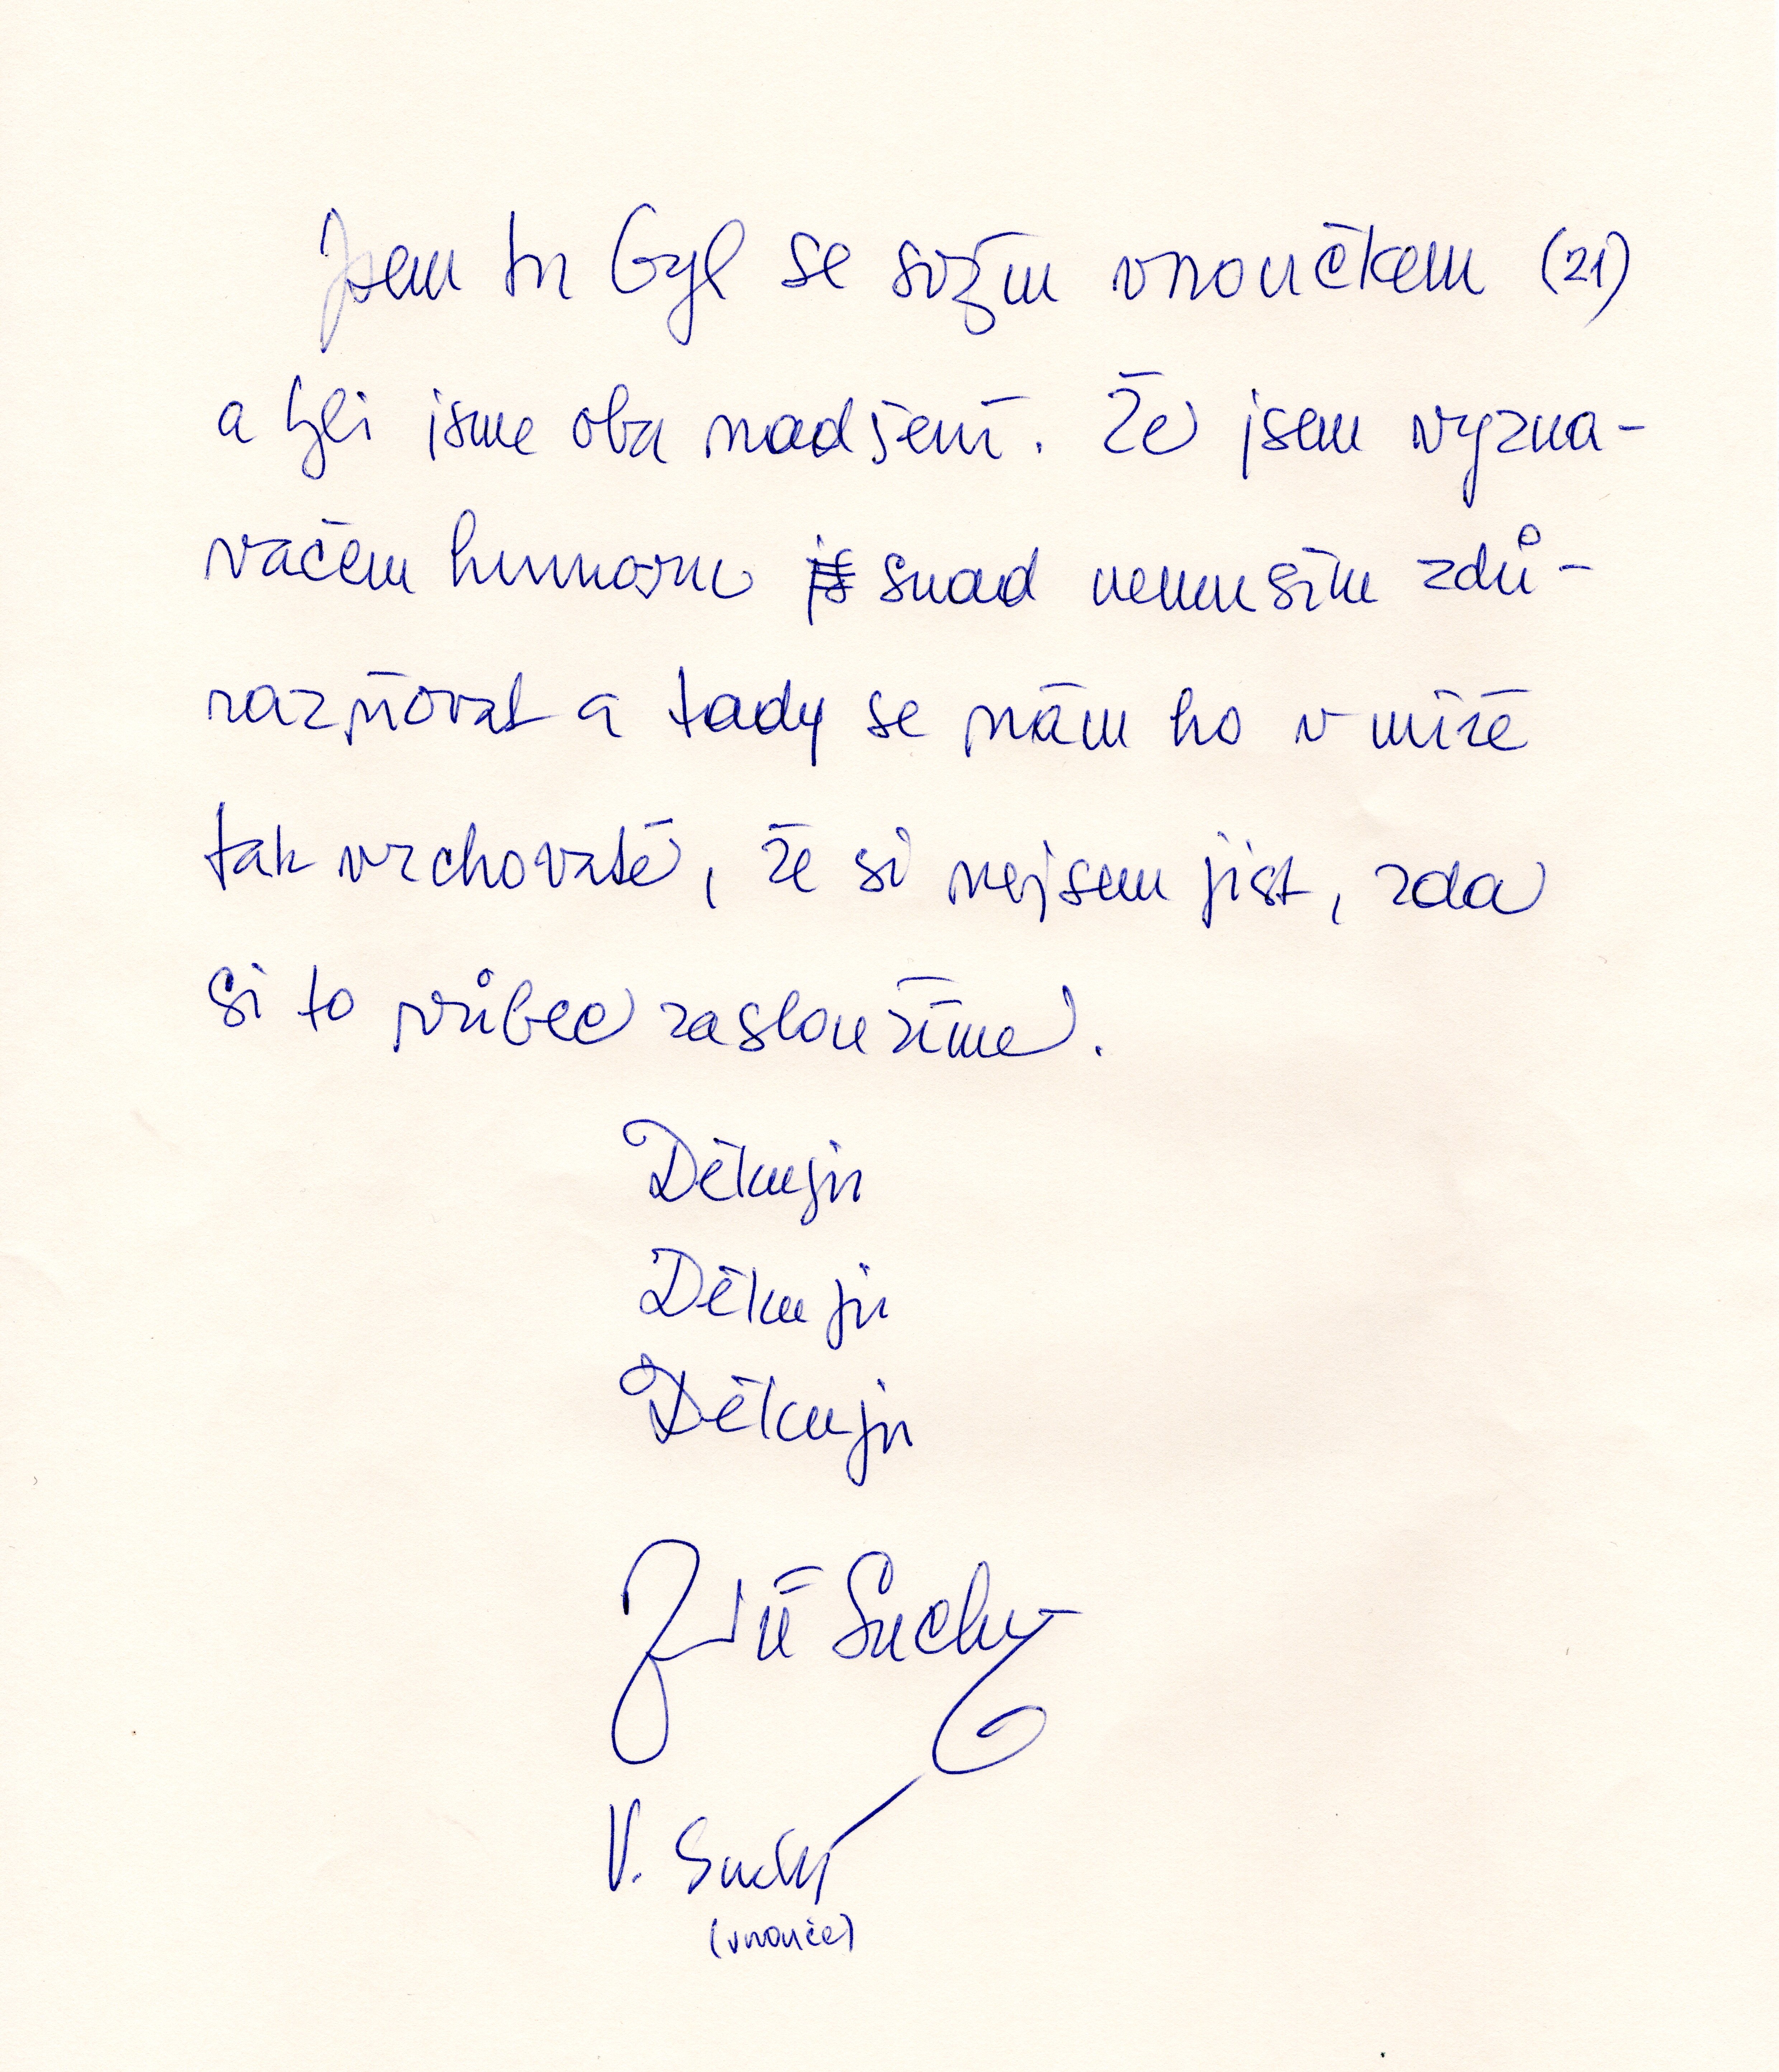 Jsem tu byl se svým vnoučkem (21)
a byli jsme oba nadšení. Že jsem vyzna-
vačem humoru snad nemusím zdů-
razňovat a tady se nám ho v míře
tak vrchovaté, že si nejsem jist, zda
si to vůbec zasloužíme.
Děkuju
Děkuju
Děkuju
Jiří Suchý
V. Suchý
(vnouče)